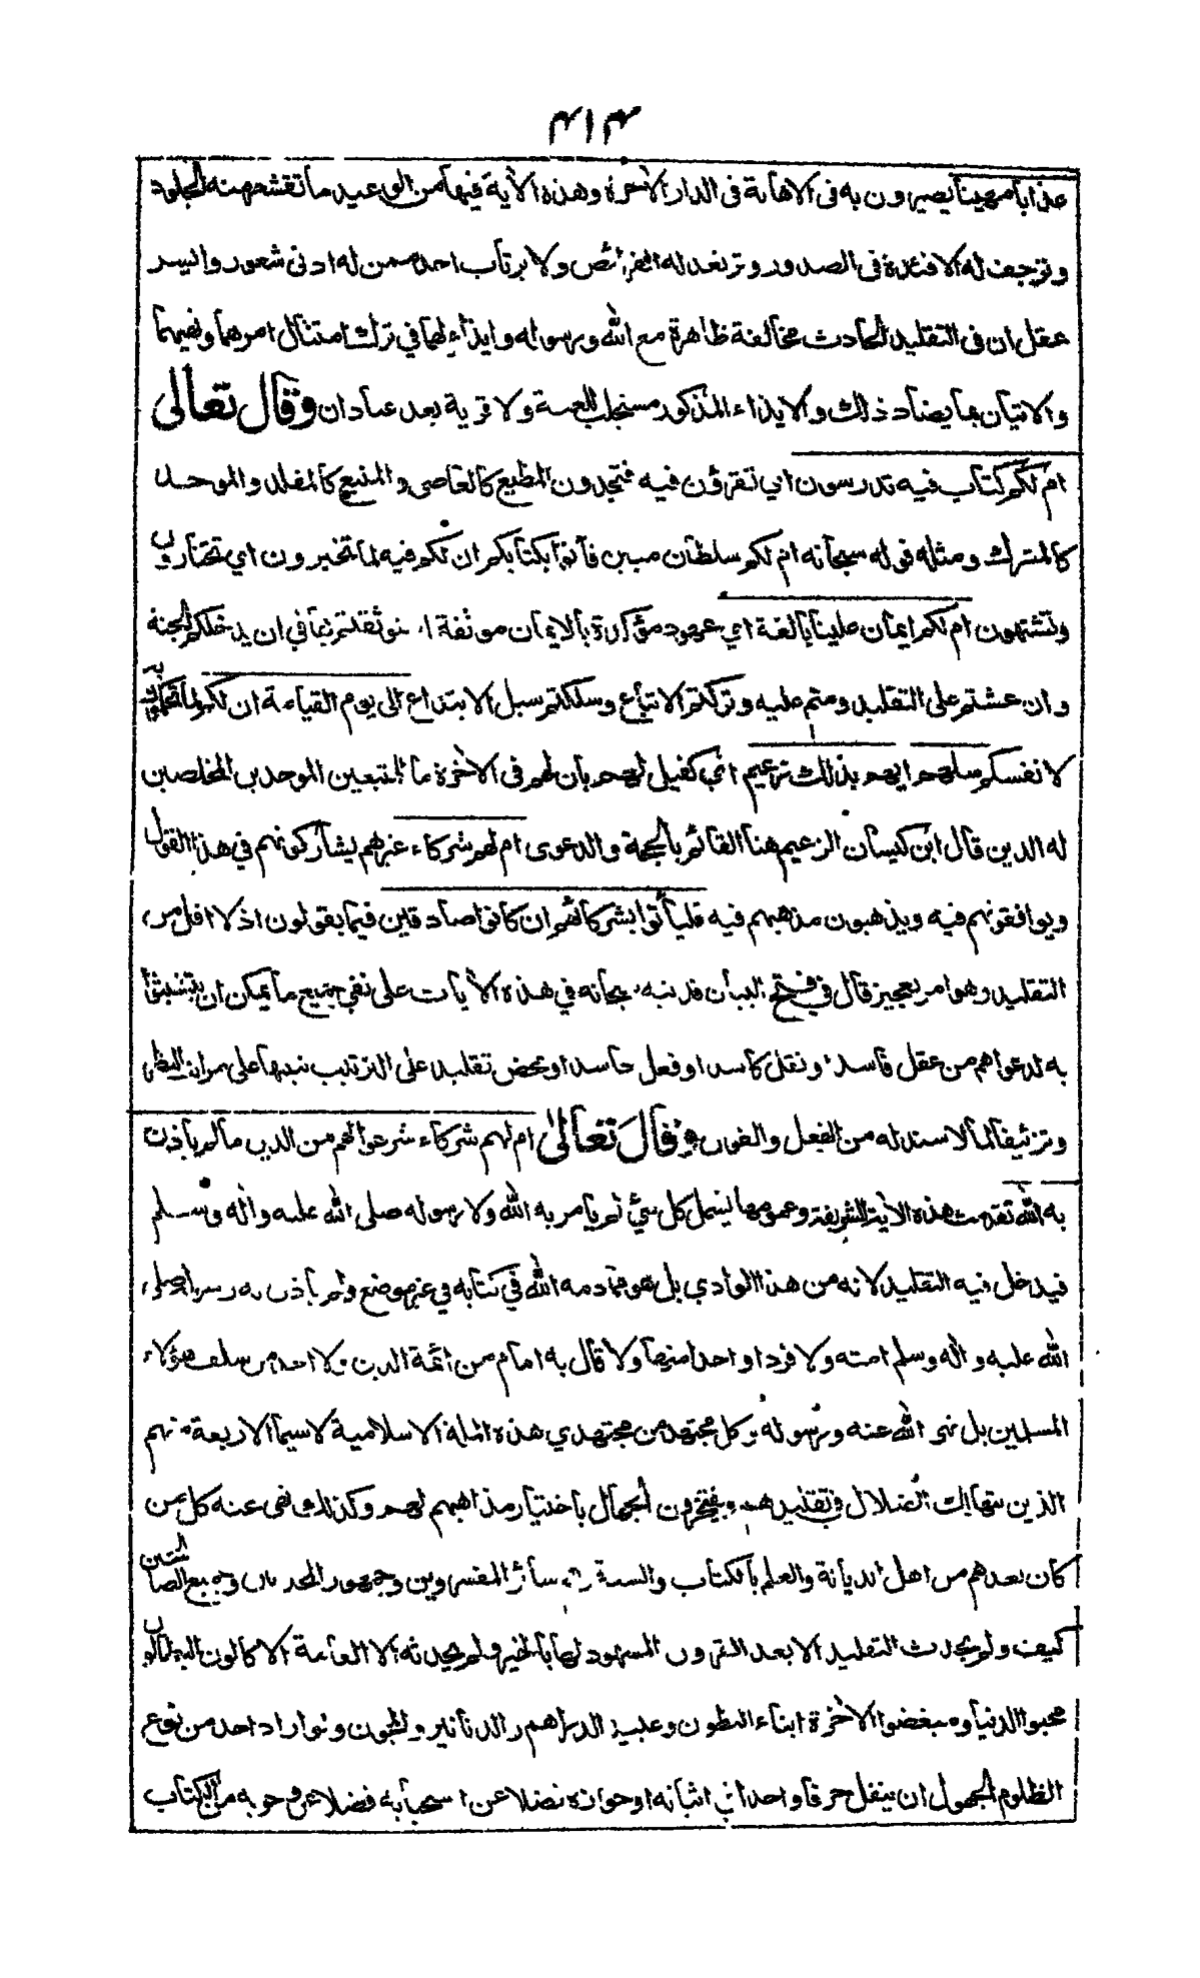 ٤١٣
عذابا مهينا يصيرون به فى الاهانة فى الدار الاخرة وهذه الآية فيها من الوعيد ما تقشعر منه الجلود
وترجف له الافئدة فى الصدور وترتعد له الفرائص ولا يرتاب احد ممن له ادنى شعور واليسر
عقل ان فى التقليد الحادث مخالفة ظاهرة مع الله ورسوله وايذاء لهما في ترك امتثال امرهما ونهيهما
والاتيان بما يضاد ذلك والايذاء المذكور مستجلب للعنة ولا قرية بعد عبادان وقال تعالى
ام لكم كتاب فيه تدرسون اي تقرؤن فيه فتجدون المطيع كالعاصى والمتبع كالمقلد والموحد
كالمشرك ومثله قوله سبحانه ام لكم سلطان مبين فأتوا بكتابكم ان لكم فيه لما تخيرون اي تختارون
وتشتهون ام لكم ايمان علينا بالغة اي عهود مؤكدة بالايمان موثقة توثقتم بها في ان يدخلكم الجنة
وان عشتم على التقليد ومتم عليه وتركتم الاتباع وسلكتم سبل الابتداع الى يوم القيامة ان لكم لما تحكمون به
لانفسكم سلهم ايهم بذلك زعيم اي كفيل لهم بان لهم فى الآخرة ما للمتبعين الموحدين المخلصين
له الدين قال ابن كيسان الزعيم هنا القائم بالحجة والدعوى ام لهم شركاء غيرهم يشاركونهم في هذا القول
ويوافقونهم فيه ويذهبون مذهبهم فيه فليأتوا بشركائهم ان كانوا صادقين فيما يقولون اذ لا اقل من
التقليد وهو امر تعجيز قال في فتح البيان قد نبه سبحانه في هذه الآيات على نفي جميع ما يمكن ان يتشبثوا
به لدعواهم من عقل فاسد او نقل كاسد او فعل حاسد او محض تقليد على الترتيب تنبيها على مراتب النظر
وتزئيفا لما لا سند له من الفعل والقول وقال تعالى ام لهم شركاء شرعوا لهم من الدين ما لم يأذن
به الله تقدمت هذه الآية الشريفة وعمومها يشمل كل شئ لم يأمر به الله ولا رسوله صلى الله عليه وآله وسلم
فيدخل فيه التقليد لانه من هذا الوادي بل هو مما ذمه الله في كتابه في غير موضع ولم يأذن به رسوله صلى
الله عليه وآله وسلم امته ولا فردا واحدا منها ولا قال به امام من ائمة الدين ولا احد من سلف هؤلاء
المسلمين بل نهى الله عنه ورسوله وكل مجتهد من مجتهدي هذه الملة الاسلامية لا سيما الاربعة منهم
الذين يتهالك الضلال في تقليدهم ويفتخرون الجهال باختيار مذاهبهم لهم وكذلك نهى عنه كل من
كان بعدهم من اهل الديانة والعلم بالكتاب والسنة سائر المفسرين وجمهور المحدثين وجميع الصالحين
كيف ولم يحدث التقليد الا بعد القرون المشهود لها بالخير ولم يحدثه الا العامة الاكالون البطالون
محبوا الدنيا ومبغضوا الآخرة ابناء البطون وعبيد الدراهم والدنانير والمجون ولو اراد احد من نوع
الظلوم الجهول ان ينقل حرفا واحدا في اثباته او جوازه فضلا عن استحبابه فضلا عن وجوبه من الكتاب